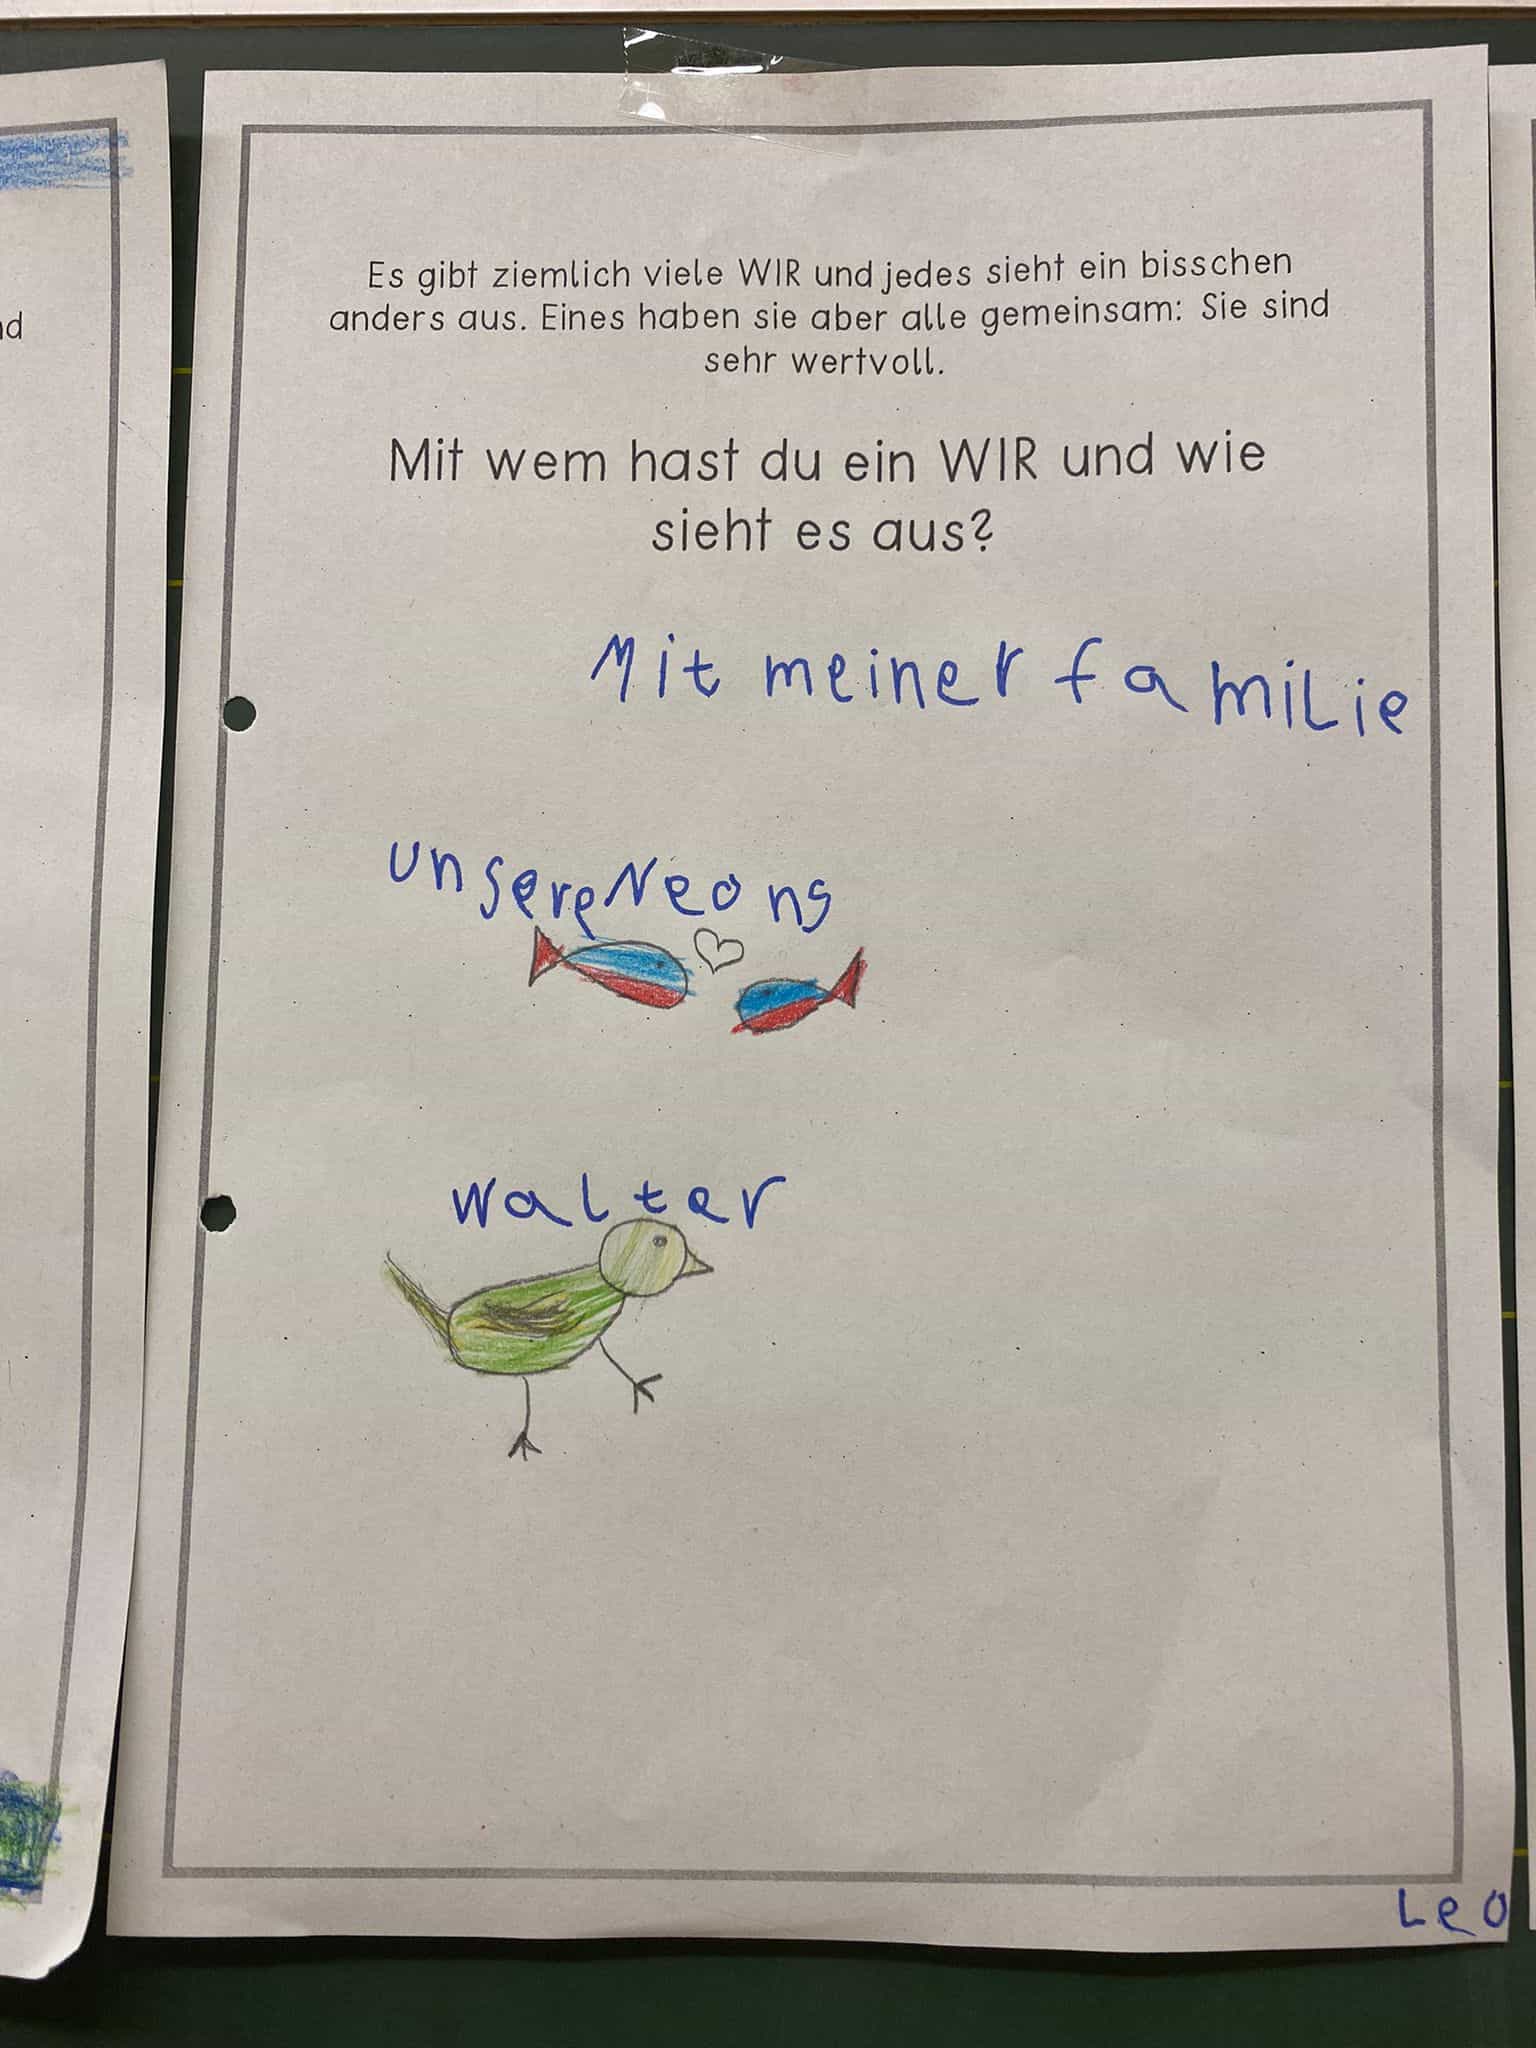 Es gibt ziemlich viele WIR und jedes sieht ein bisschen
anders aus. Eines haben sie aber alle gemeinsam: Sie sind
sehr wertvoll.
Mit wem hast du ein WIR und wie
sieht es aus?
Mit meiner familie
unsere Neons
walter
Leo